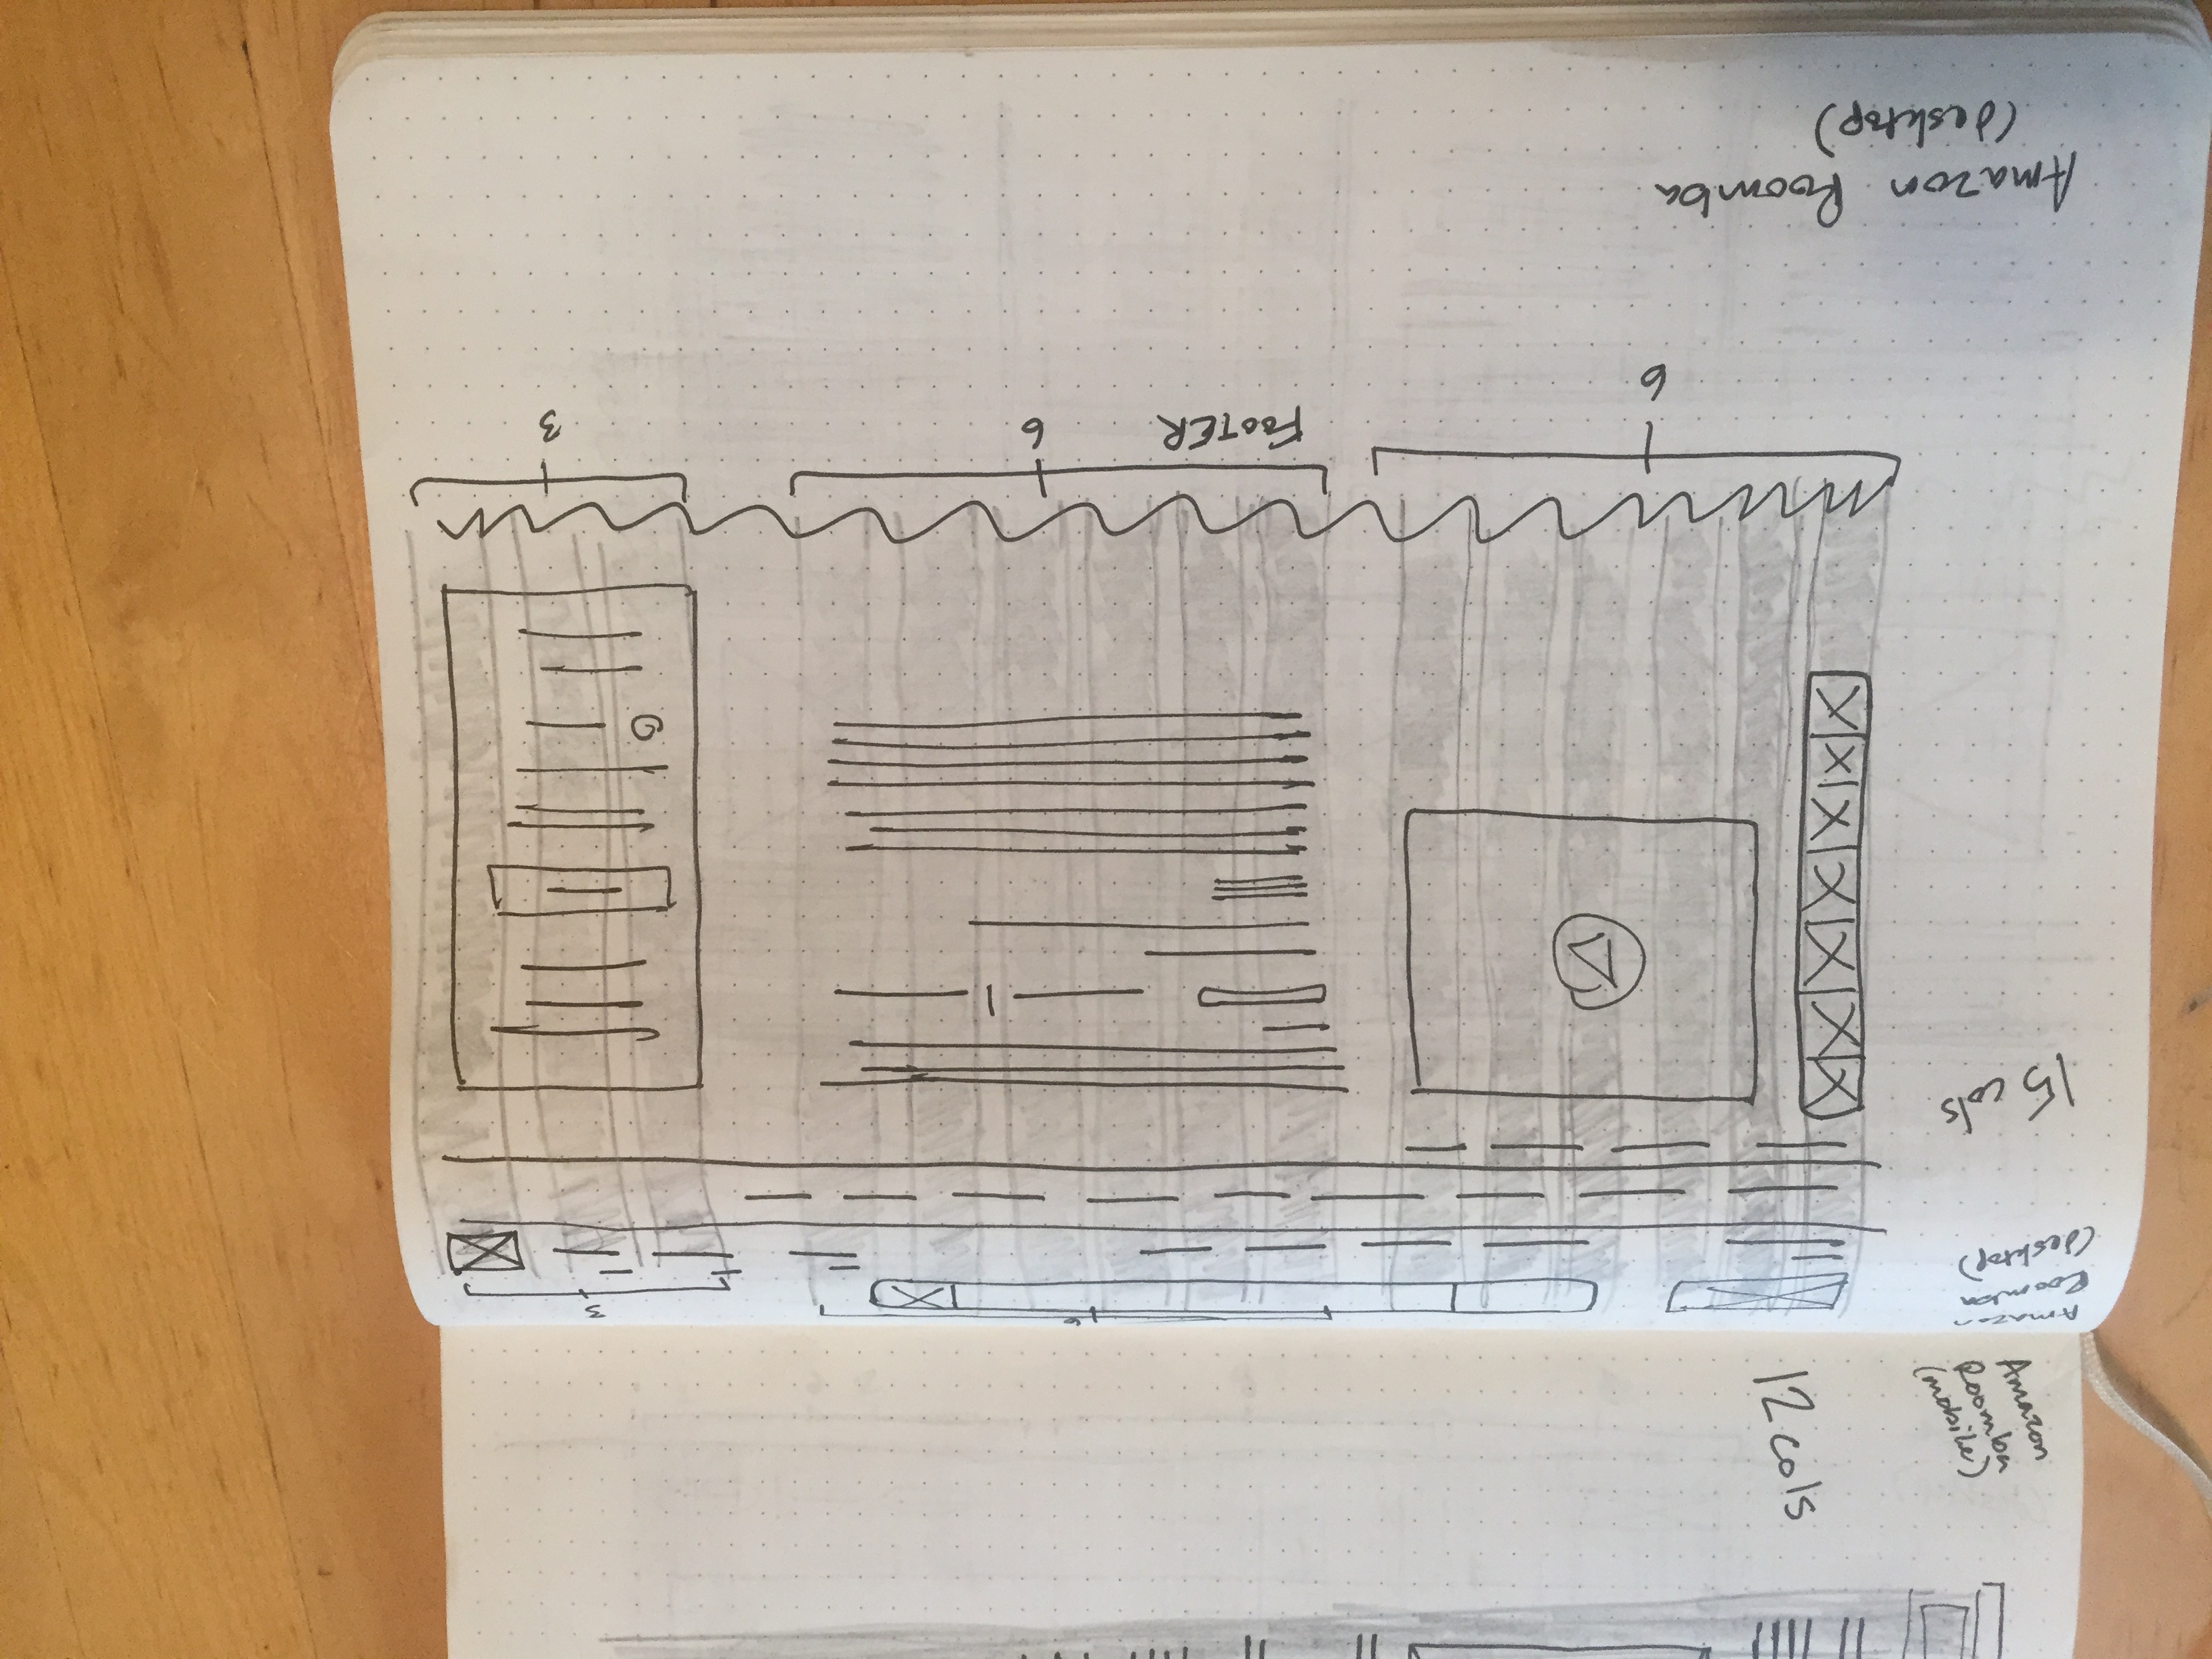 Amazon
Roomba
(mobile)
12 cols
Amazon
Roomba
(desktop)
6
3
15 cols
FOOTER
6
6
3
Amazon Roomba
(desktop)